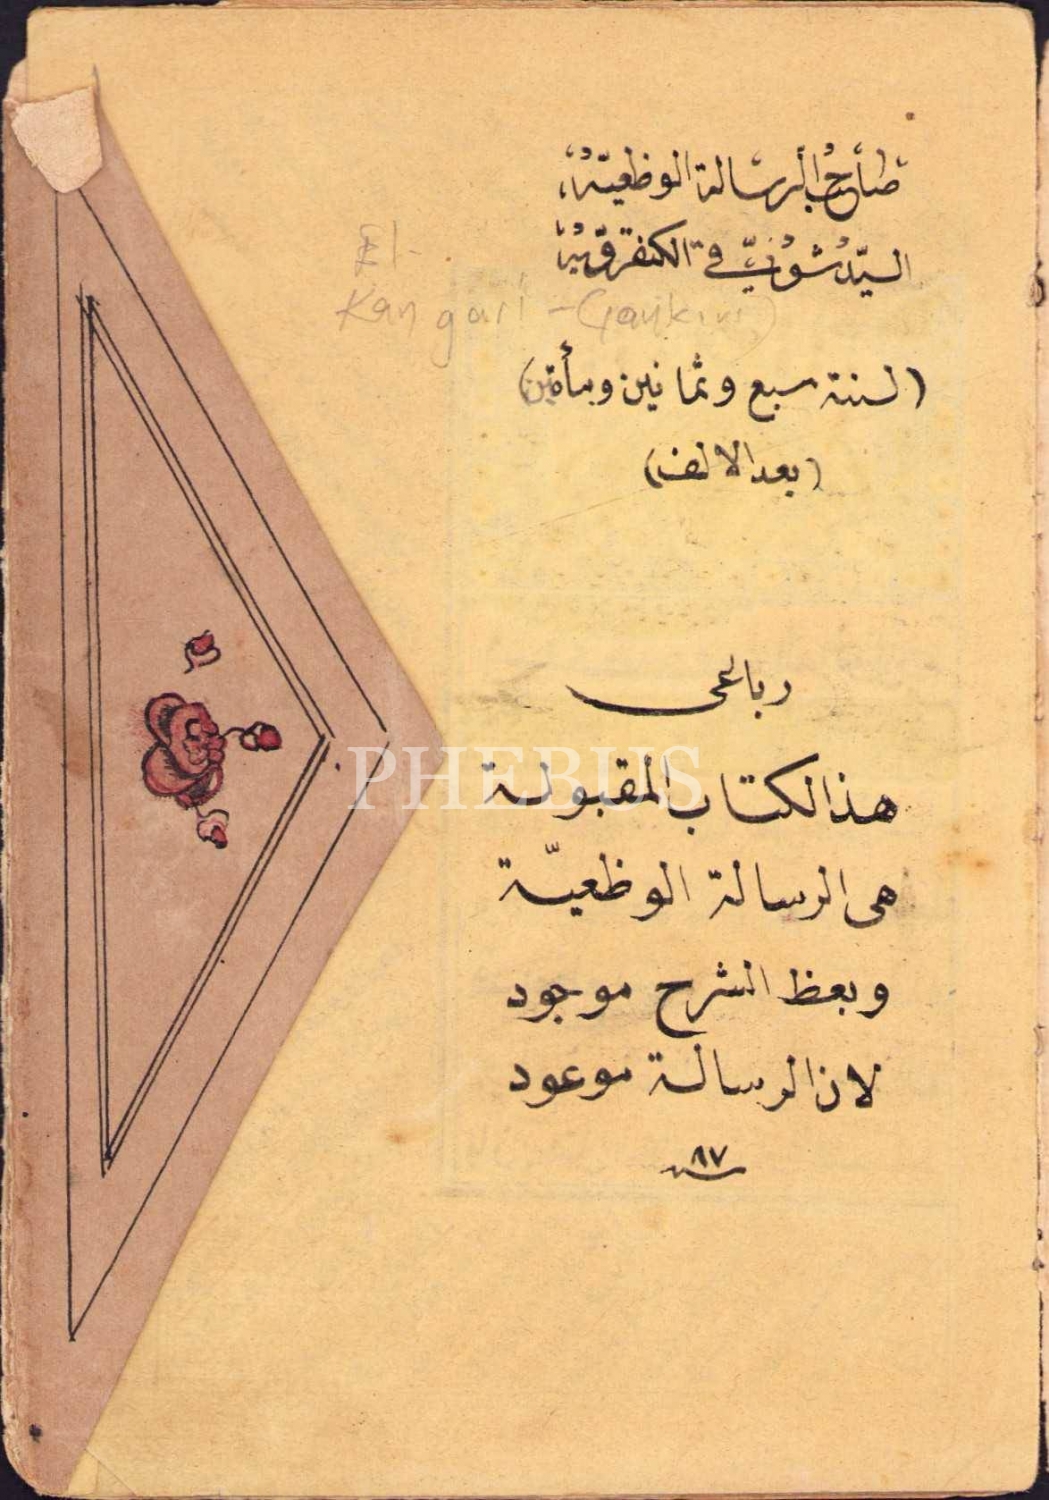 صاحب الرسالة الوظعيّة
السيّد فى الكنقرى
El-
Kangari - (Çankırı)
(لسنة سبع وثمانين ومأتين)
(بعد الالف)
رباعى
هذالكتاب المقبولة
هى الرسالة الوظعيّة
وبعظ الشرح موجود
لان الرسالة موعود
٨٧
PHEBUS